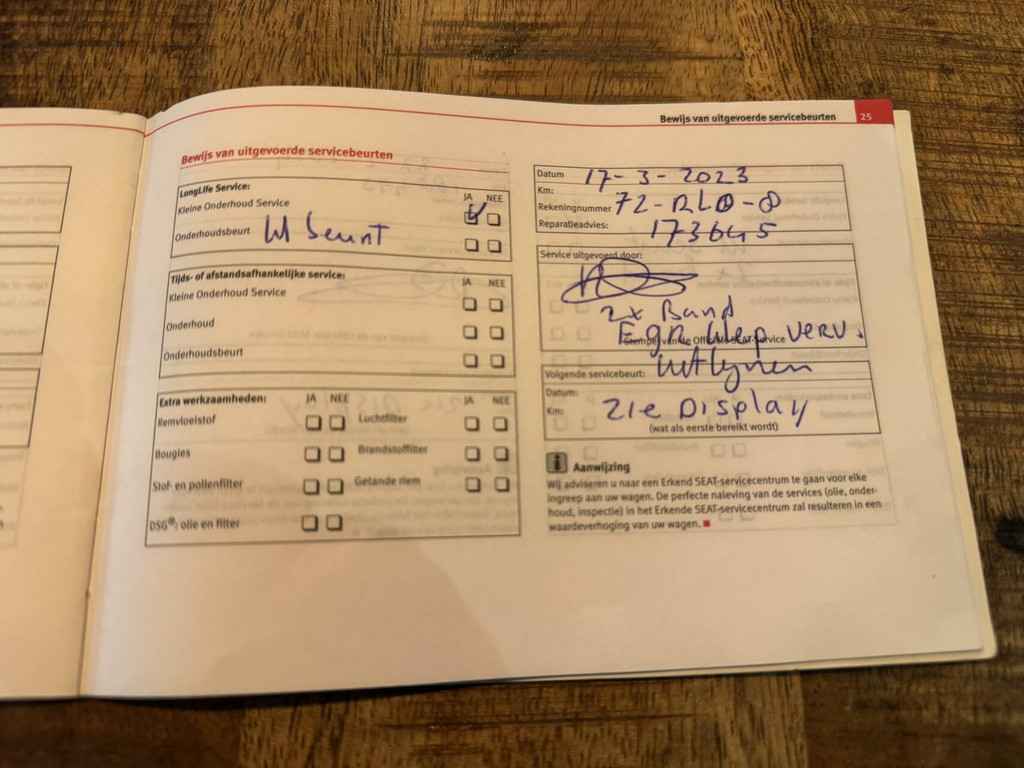 Bewijs van uitgevoerde servicebeurten 25
Bewijs van uitgevoerde servicebeurten
LongLife Service:
JA NEE
Kleine Onderhoud Service
Onderhoudsbeurt
Tijds- of afstandsafhankelijke service:
JA NEE
Kleine Onderhoud Service
Onderhoud
Onderhoudsbeurt
Extra werkzaamheden: JA NEE JA NEE
Remvloeistof Luchtfilter
Bougies Brandstoffilter
Stof- en pollenfilter Getande riem
DSG®; olie en filter
Datum 17-3-2023
Km:
Rekeningnummer 72-RLD-8
Reparatieadvies: 173645
Service uitgevoerd door:
2x Band
Egr klep verv.
Stempel van de Officiële SEAT-Service
Uitlijnen
Volgende servicebeurt:
Datum:
Km: Zie Display
(wat als eerste bereikt wordt)
i Aanwijzing
Wij adviseren u naar een Erkend SEAT-servicecentrum te gaan voor elke
ingreep aan uw wagen. De perfecte naleving van de services (olie, onder-
houd, inspectie) in het Erkende SEAT-servicecentrum zal resulteren in een
waardeverhoging van uw wagen.